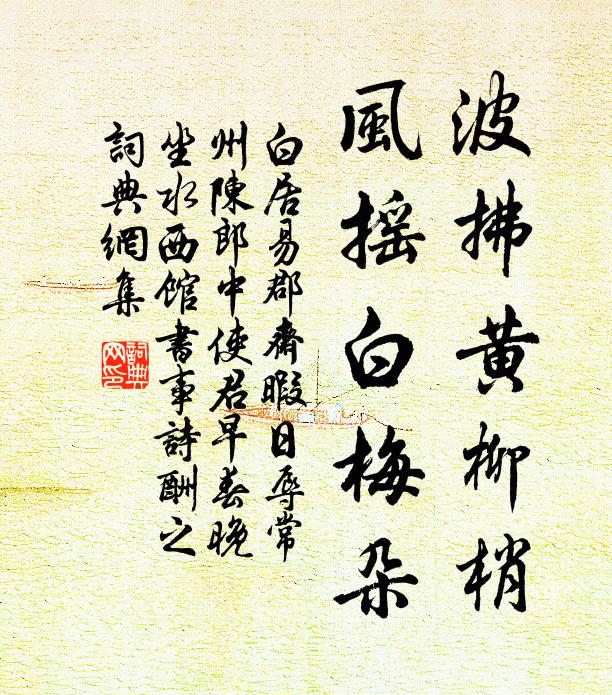 波拂黄柳梢
風搖白梅朵
白居易郡齋暇日辱常
州陳郎中使君早春晚
坐水西館書事詩酬之
詞典網集
詞典
网印